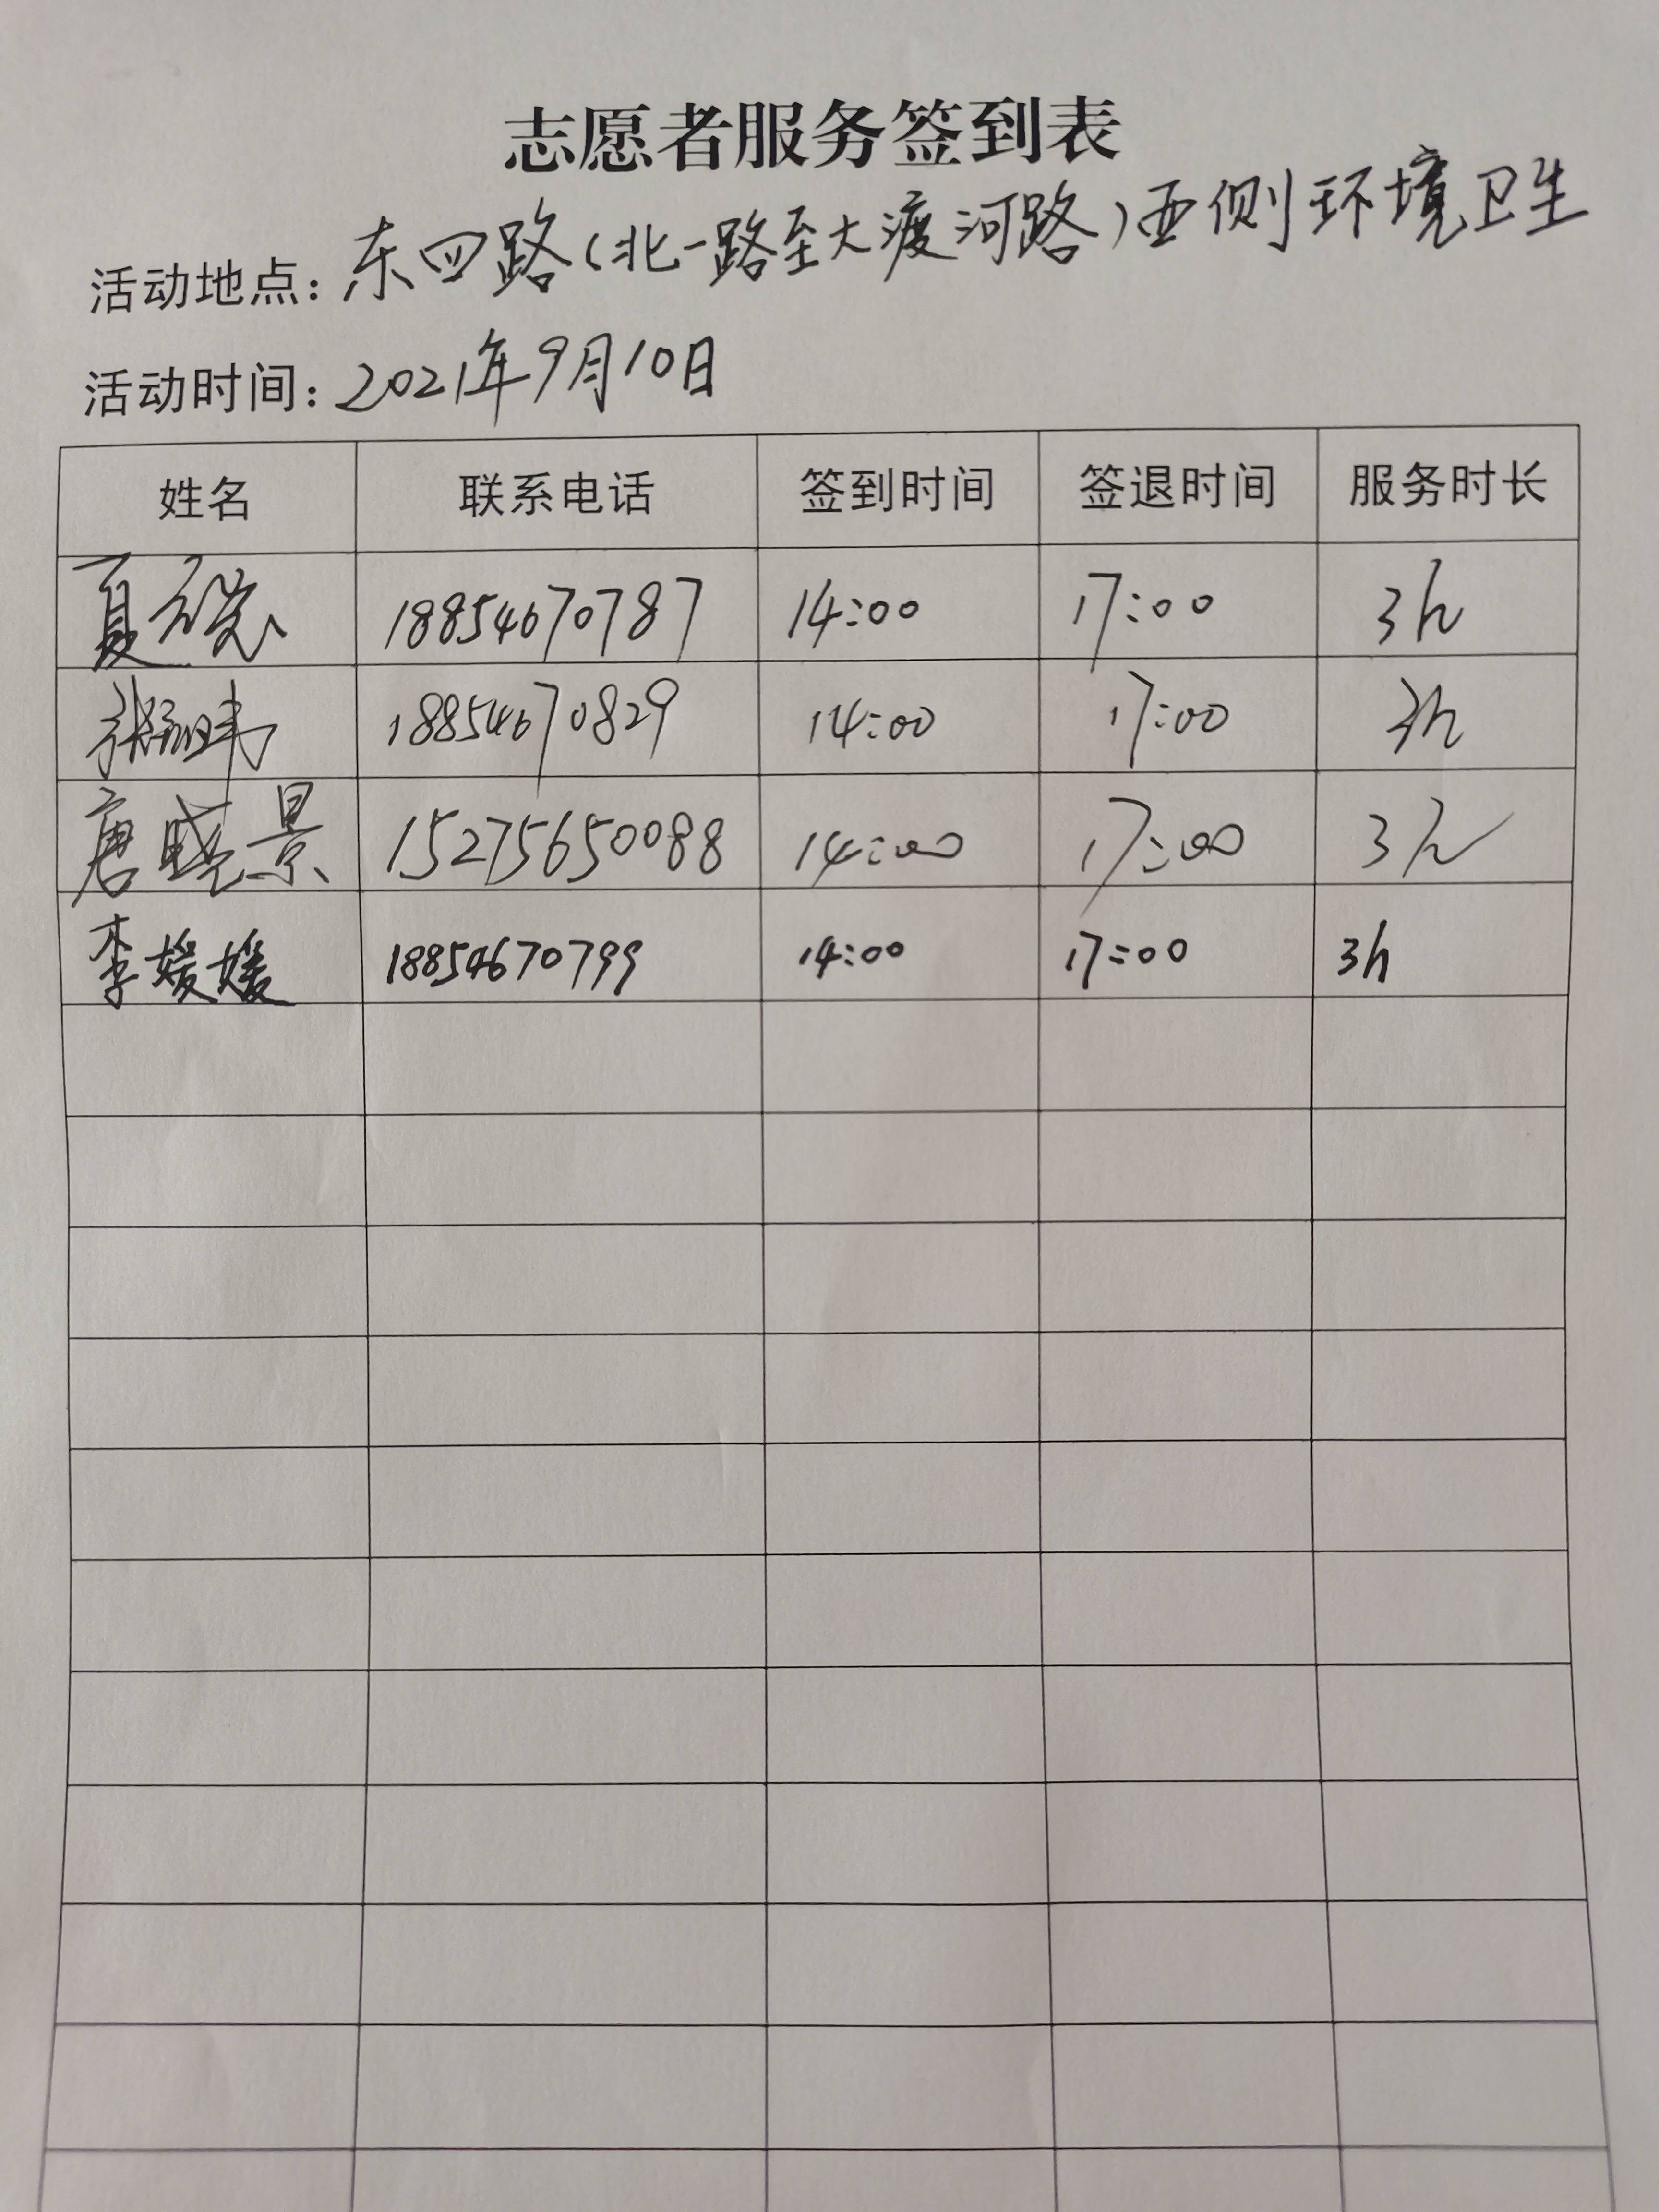 志愿者服务签到表
活动地点：东四路（北一路至大渡河路）西侧环境卫生
活动时间：2021年9月10日
姓名 联系电话 签到时间 签退时间 服务时长
夏 18854670787 14:00 17:00 3h
张 18854670829 14:00 17:00 3h
唐晓景 15275650088 14:00 17:00 3h
李媛媛 18854670799 14:00 17:00 3h